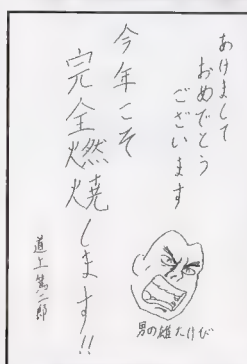 あけまして
おめでとう
ございます
今年こそ
完全燃焼します!!
男の雄たけび
道上篤二郎